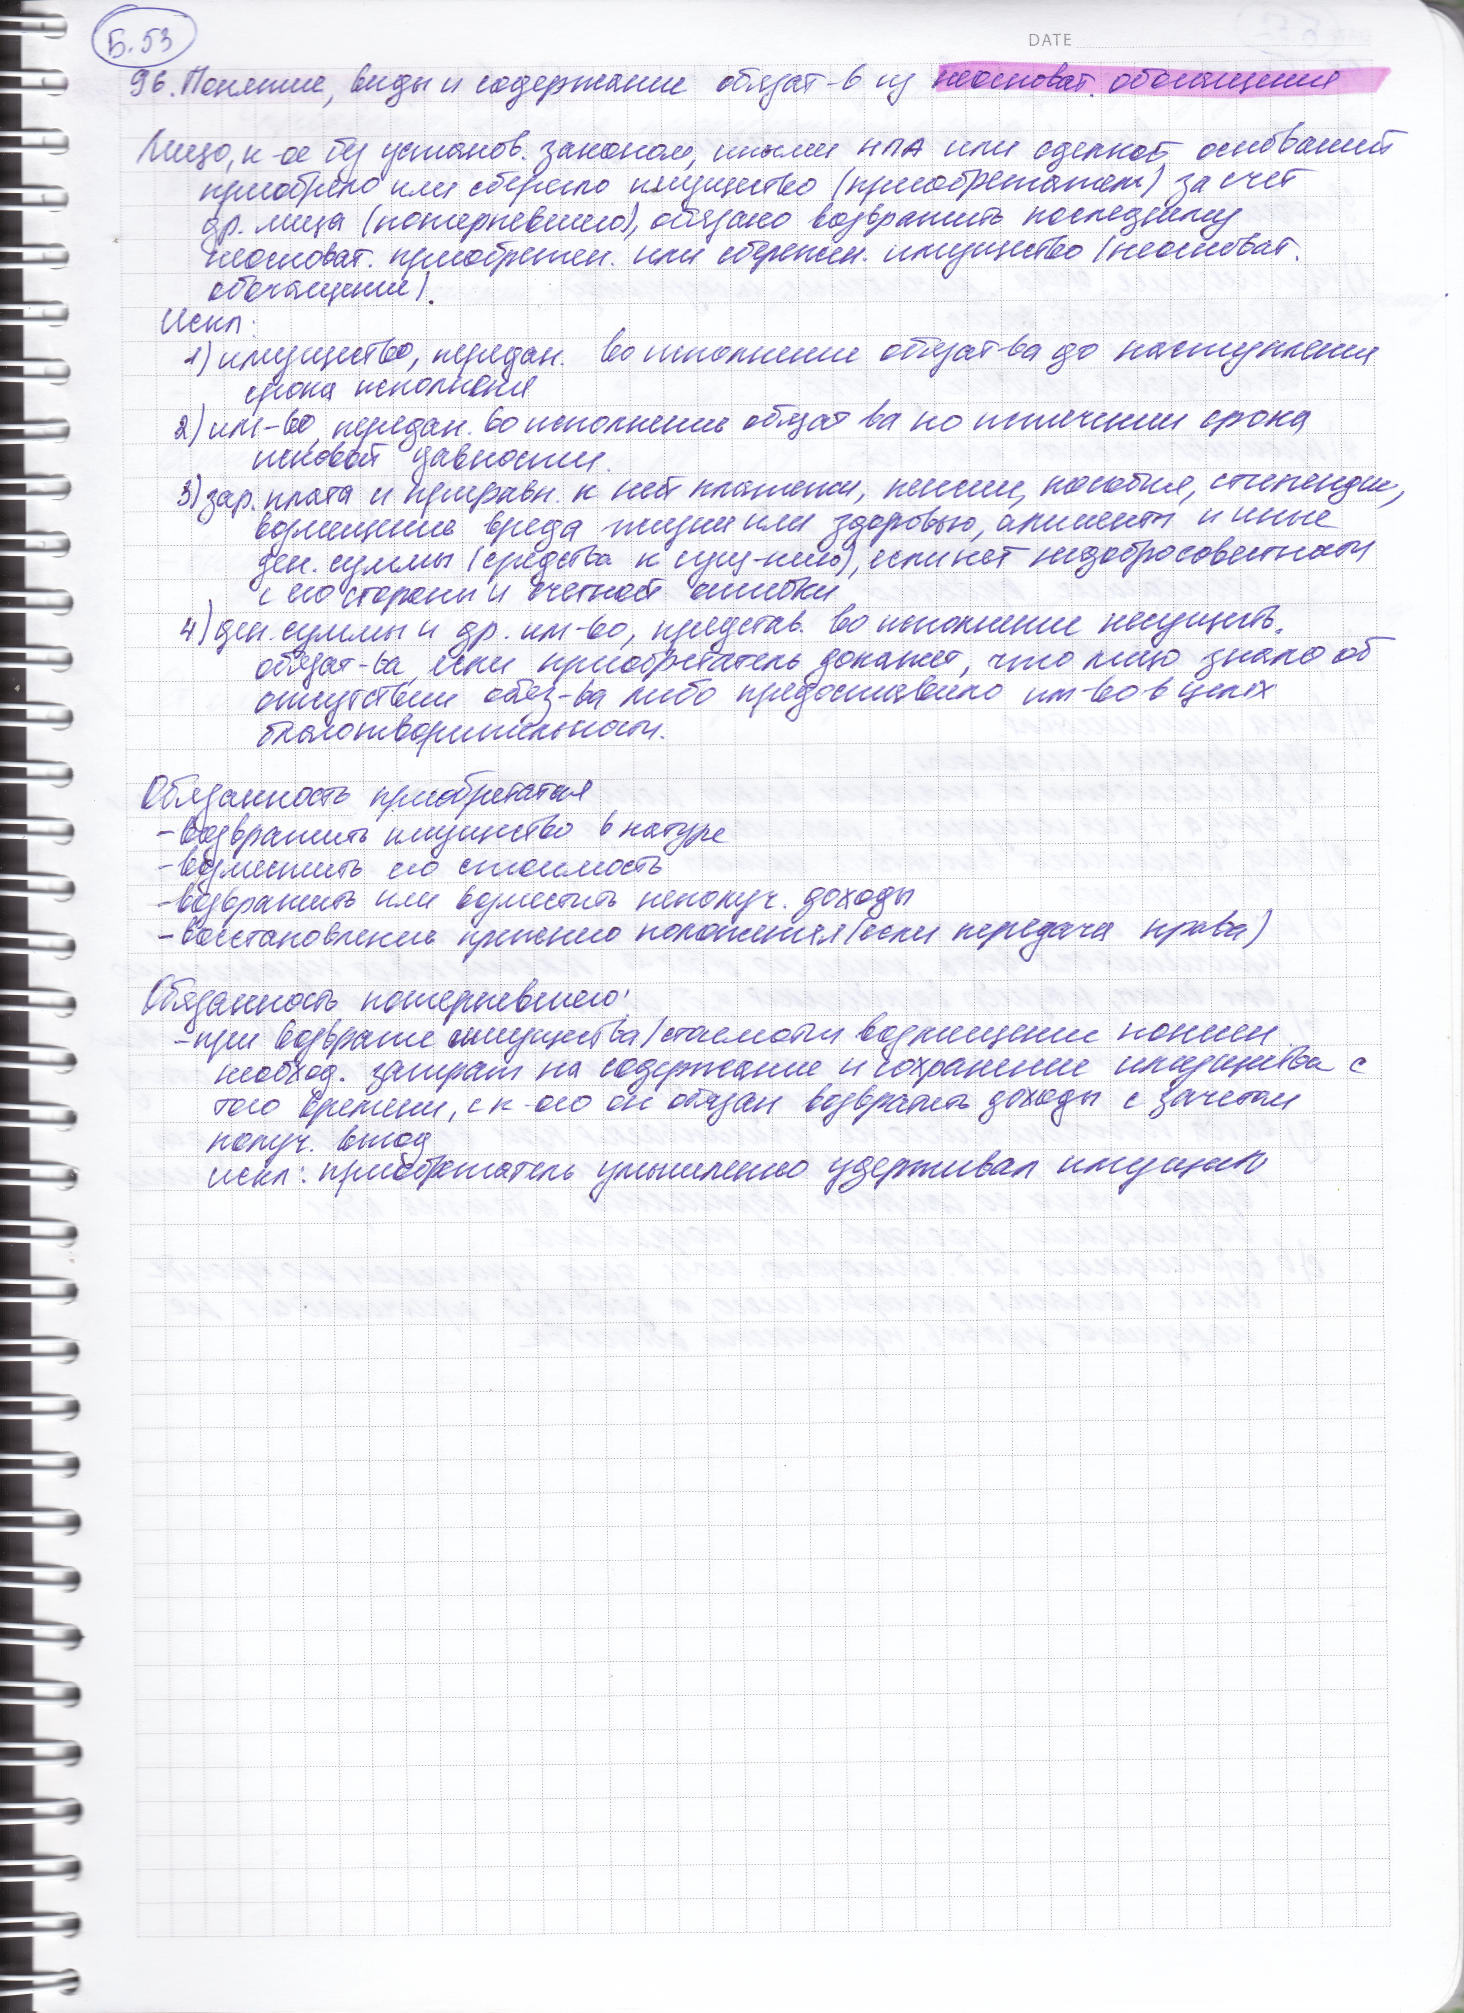 Б.53
DATE
96. Понятие, виды и содержание обязат-в из неосноват. обогащения
Лицо, к-ое бу установ. законом, иными НПА или сделкой оснований
приобрело или сберегло имущество (приобретатель) за счет
др. лица (потерпевшего), обязано возвратить последнему
неосноват. приобретен. или сбережен. имущество (неосноват.
обогащение).
Искл:
1) имущество, передан. во исполнение обязат-ва до наступления
срока исполнения
2) им-во, передан. во исполнение обязат-ва по истечении срока
исковой давности.
3) зар. плата и приравн. к ней платежи, пенсии, пособия, стипендии,
возмещение вреда жизни или здоровью, алименты и иные
ден. суммы (средства к сущ-нию), если нет недобросовестности
с его стороны и счетной ошибки
4) ден. суммы и др. им-во, представ. во исполнение несуществ.
обязат-ва, если приобретатель докажет, что лицо знало об
отсутствии обяз-ва либо предоставило им-во в целях
благотворительности.
Обязанность приобретателя
- возвратить имущество в натуре
- возместить его стоимость
- возвратить или возместить неполуч. доходы
- восстановление прежнего положения (если передача права)
Обязанность потерпевшего:
- при возврате имущества/стоимости возмещение понесен.
необход. затрат на содержание и сохранение имущества с
того времени, с к-ого он обязан возвратить доходы с зачетом
получ. выгод
искл: приобретатель умышленно удерживал имущество